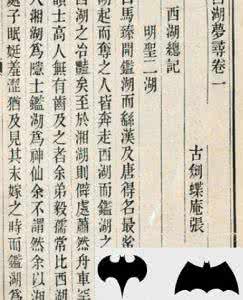 西湖夢尋卷一
古劍蝶庵張
西湖總記
明聖二湖
自馬臻開鑑湖而繇漢及唐得名最
湖起而奪之人皆奔走西湖而鑑湖之
西湖之冶艷矣至於湘湖則僻處蕭然舟車
韻士高人無有齒及之者余弟毅孺常比西湖
人湘湖為隱士鑑湖為神仙余不謂然余以湘
處子眡娗羞澁猶及見其未嫁之時而鑑湖為